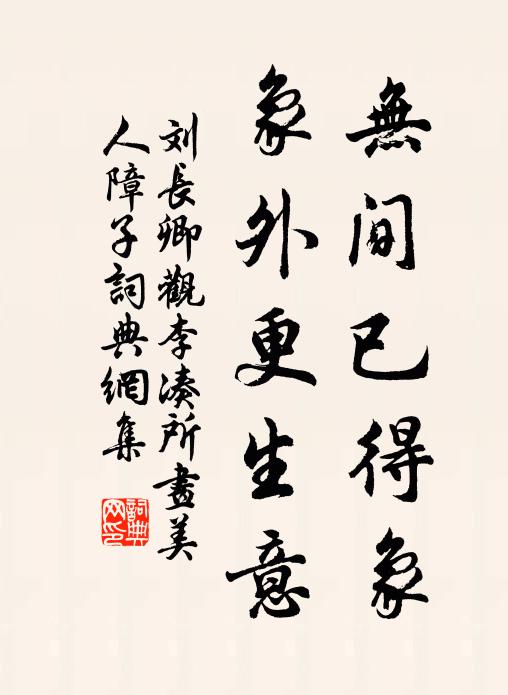 無間已得象
象外更生意
刘長卿觀李湊所畫美
人障子詞典網集
詞典网印